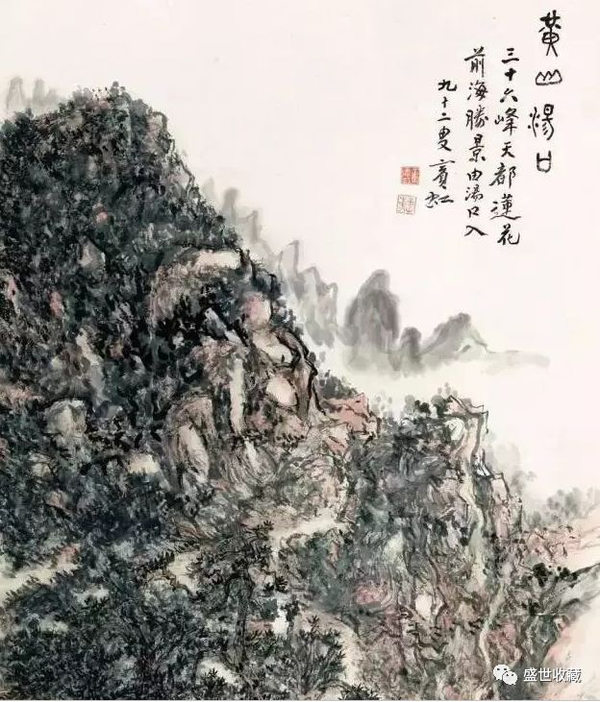 黄山汤口
三十六峰天都莲花
前海勝景由湯口入
九十二叟賓虹
盛世收藏